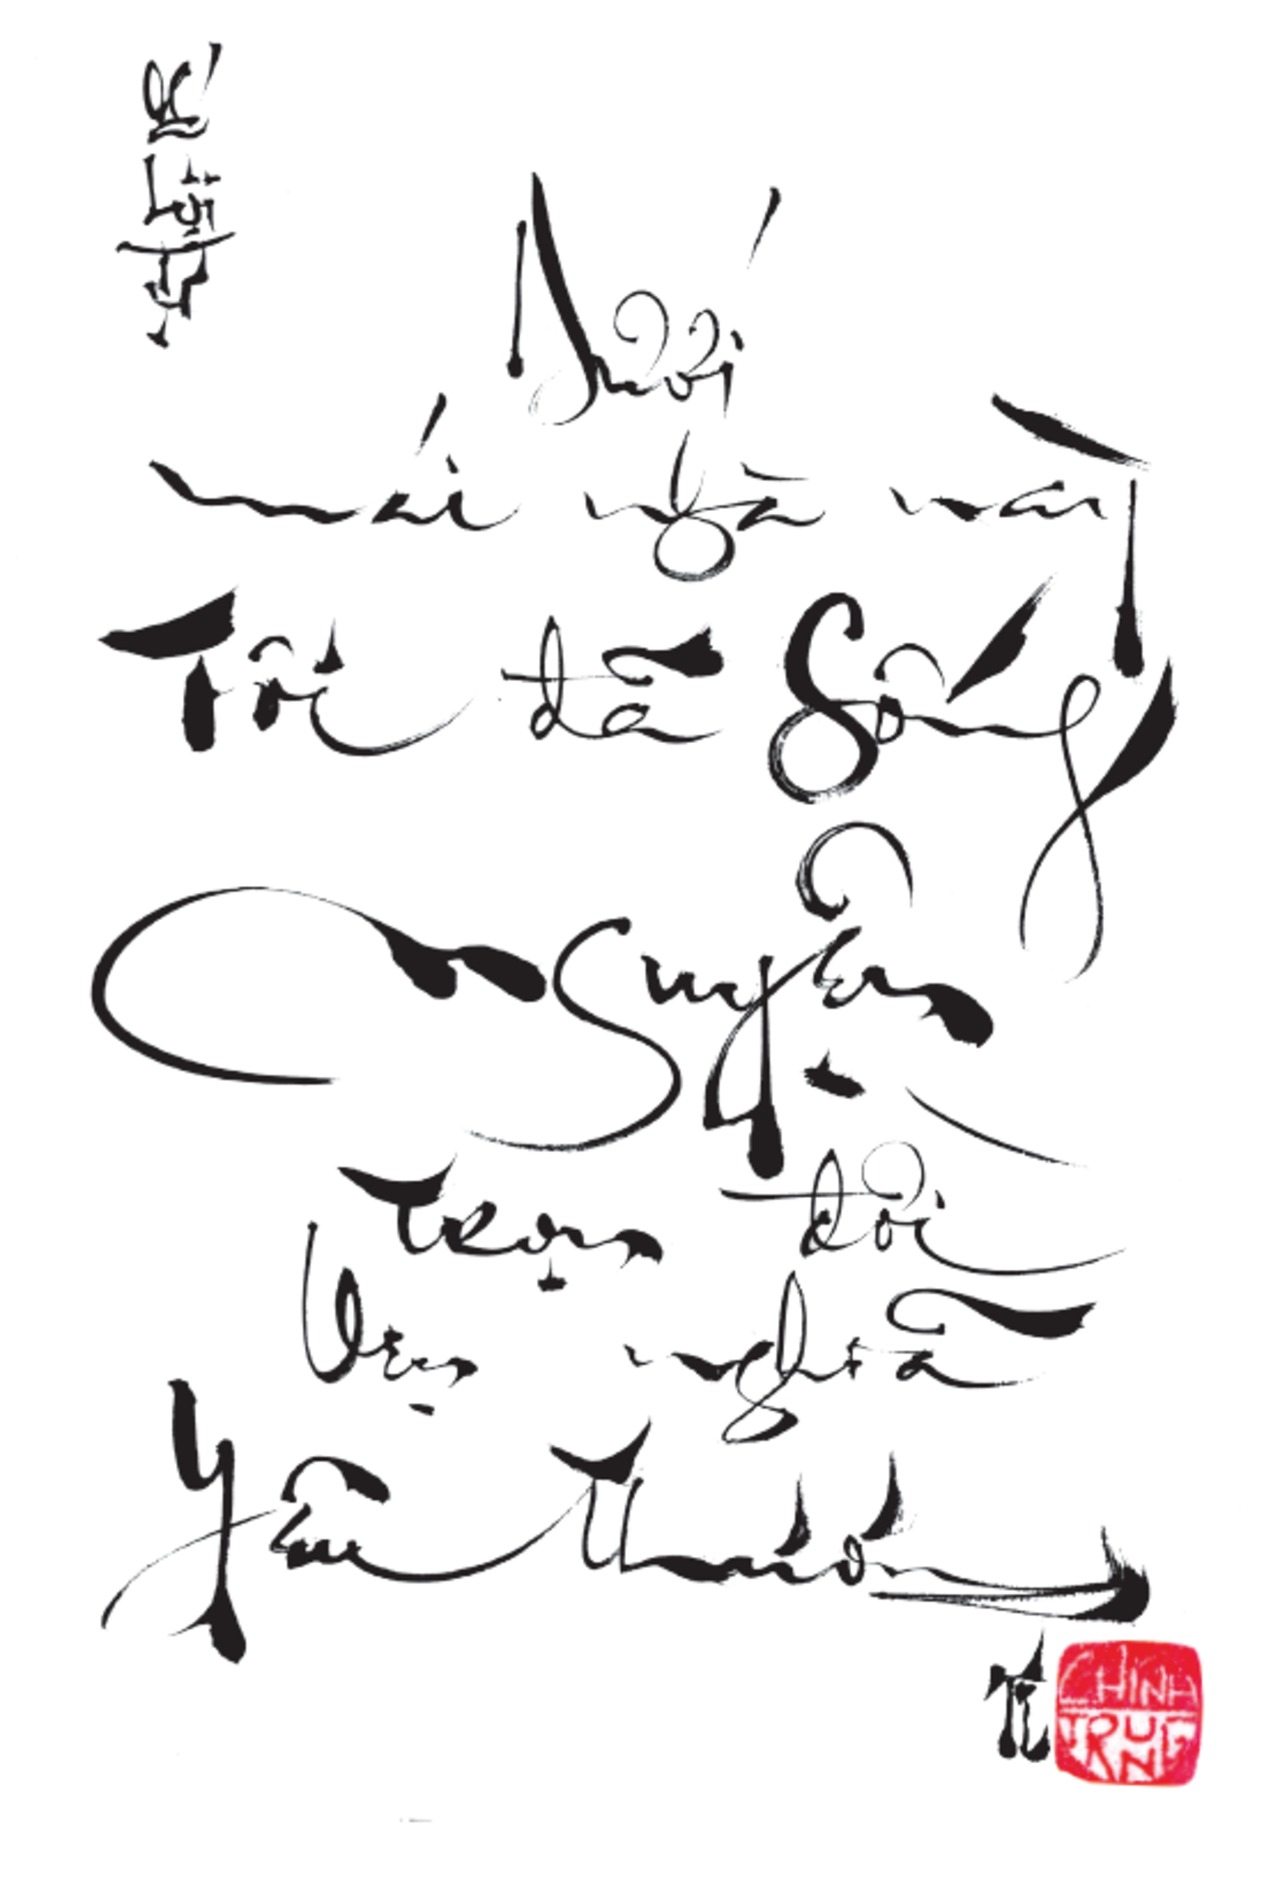 Dưới
mái nhà này
Tôi đã Sống
Nguyện
trọn đời
Vẹn nghĩa
Yêu thương
CHÍNH
TRUNG